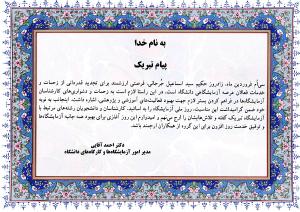 به نام خدا
پیام تبریک
سی‌ام فروردین ماه، زادروز حکیم سید اسماعیل جرجانی، فرصتی ارزشمند برای تجدید قدردانی از زحمات و
خدمات فعالان عرصه آزمایشگاهی دانشگاه است. در این راستا لازم است به زحمات و دشواری‌های کارشناسان
آزمایشگاه‌ها در فراهم کردن بستر لازم جهت بهبود فعالیت‌های آموزشی و پژوهشی، اشاره داشت. اینجانب به نوبه
خود ضمن گرامیداشت این مناسبت، روز ملی آزمایشگاه را به اساتید، کارشناسان و دانشجویان رشته‌های مرتبط با
آزمایشگاه تبریک گفته و تلاش‌هایشان را ارج می‌نهم و امیدوارم این روز آغازی برای بهبود همه جانبه آزمایشگاه‌ها
و توفیق خدمت روز افزون برای این گروه از همکاران ارجمند باشد.
دکتر احمد آقایی
مدیر امور آزمایشگاه‌ها و کارگاه‌های دانشگاه